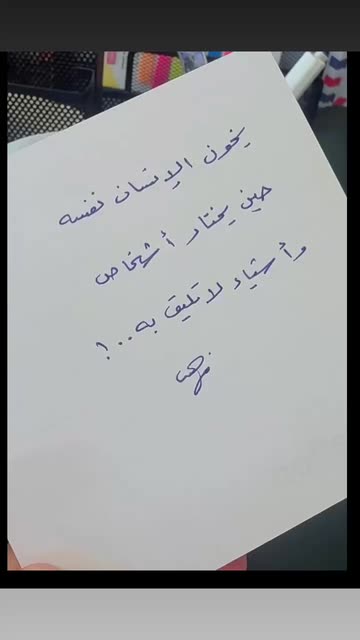 يخون الإنسان نفسه
حين يختار أشخاص
وأشياء لا تليق به..؟